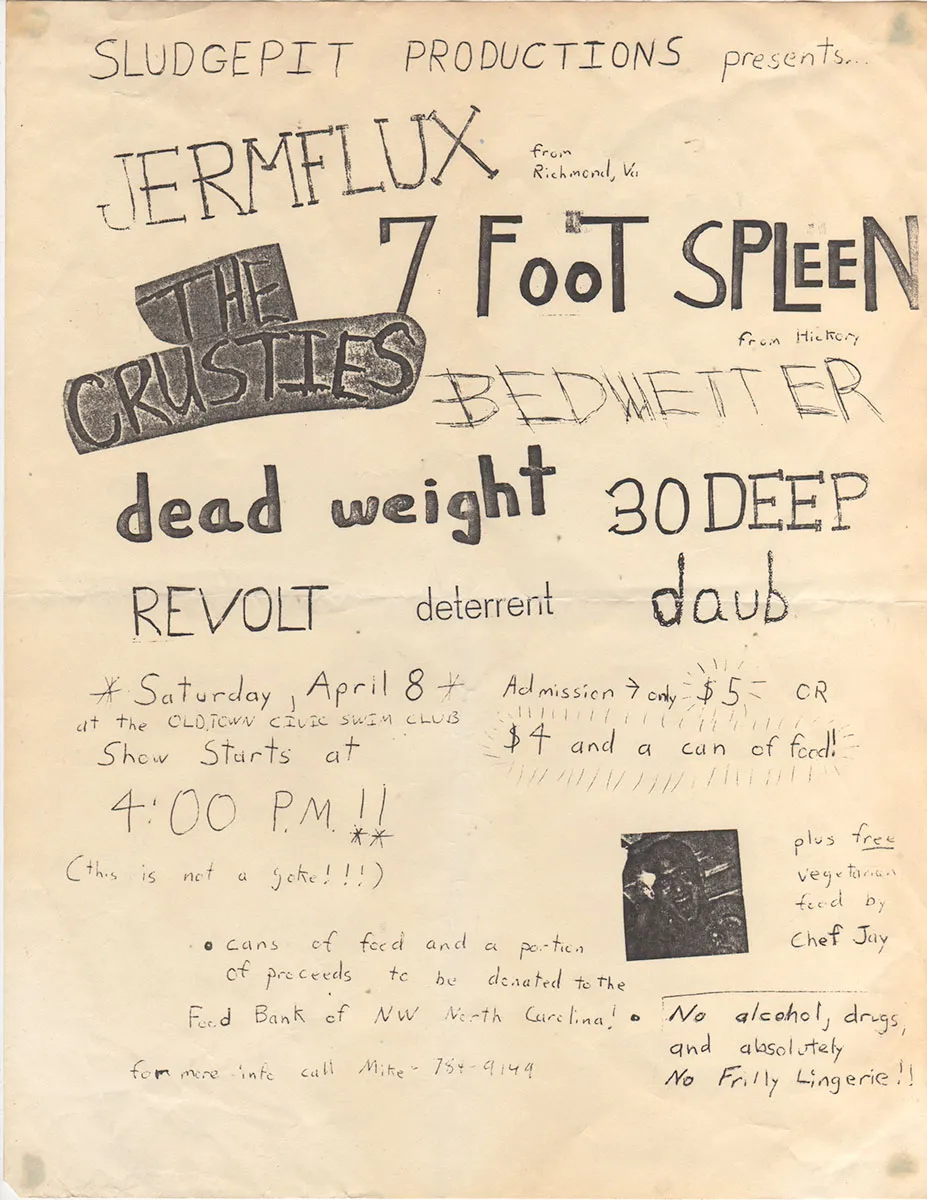 SLUDGEPIT PRODUCTIONS presents...
JERMFLUX
from
Richmond, Va
7 FOOT SPLEEN
from Hickory
THE
CRUSTIES
BEDWETTER
dead weight
30 DEEP
REVOLT
deterrent
daub
* Saturday, April 8 *
at the OLDTOWN CIVIC SWIM CLUB
Show Starts at
4:00 P.M.!!
**
(this is not a joke!!!)
Admission → only $5 OR
$4 and a can of food!
plus free
vegetarian
food by
Chef Jay
• cans of food and a portion
of proceeds to be donated to the
Food Bank of NW North Carolina!
• No alcohol, drugs,
and absolutely
No Frilly Lingerie!!
for more info call Mike - 784-9149